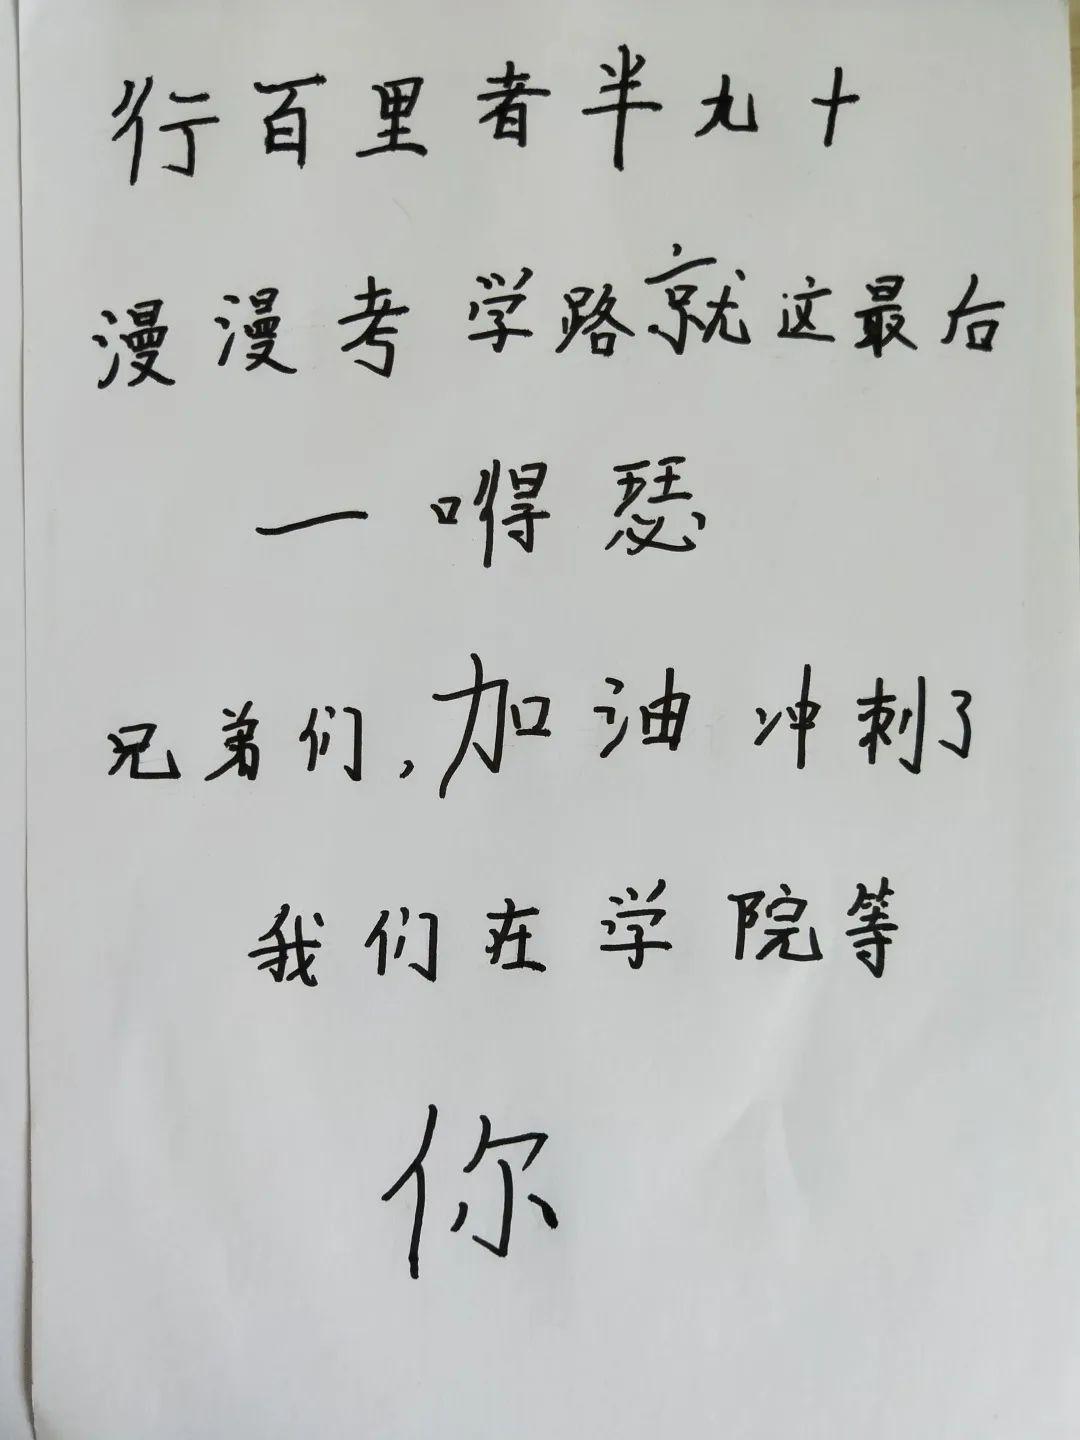 行百里者半九十
漫漫考学路就这最后
一嘚瑟
兄弟们,加油冲刺了
我们在学院等
你